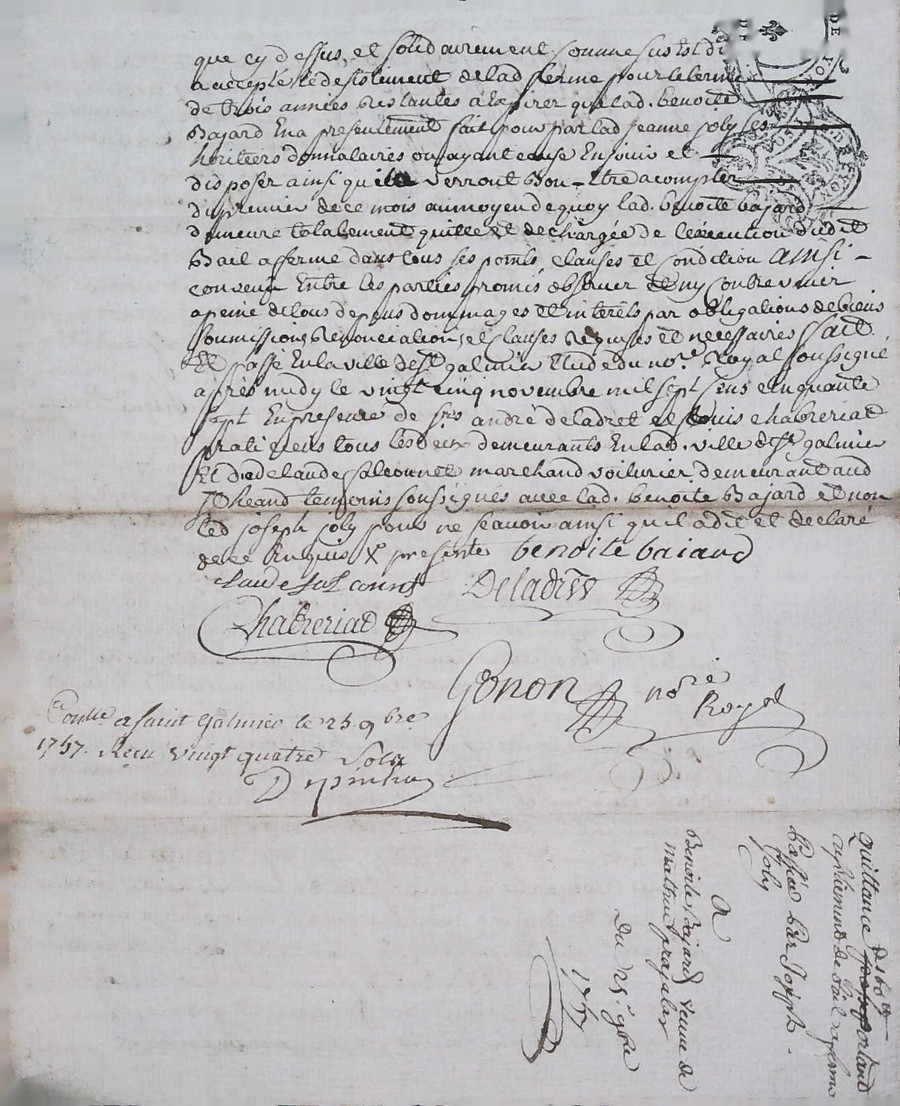 que cy dessus, et solidairement comme sus est di
accepte le desistement de lad ferme pour le terme
de trois années restantes a expirer que lad. benoite
Bajard en a presentement fait pour par lad jeanne joly ses
heritiers donnataires ou ayant cause en jouir et
disposer ainsi qu'ils verront bon être a compter
du premier de ce mois au moyen de quoy lad. benoite bajard
demeure totalement quitte et dechargée de l'execution dud et
Bail a ferme dans tous ses points clauses et condition Ainsi
convenu Entre les parties promis observer et ny contrevenir
a peine de tous depens dommages et interêts par obligations de biens
soumissions renonciations et clauses requises et necessaires fait
et passé En la ville de St galmier Etude du nore. Royal soussigné
après midy le vingt cinq novembre mil sept cens cinquante
sept En presence de srs andré deladret et Louis chabreriad
pratiqiens tous les deux demeurants En lad. ville de St galmier
Et de claude falconnet marchand voiturier demeurant aud
temoins soussignés avec lad. benoite Bajard et non
led joseph joly pour ne scavoir ainsi qu'il a dit et declaré
de ce Enquis presente benoite baiard
Claude fal connet Deladret
Chabreriad
Gonon nore Royal
Contlé a Saint Galmier le 25 9bre
1757. Recu vingt quatre Sols
Quittance de 166 portant
de Bail a ferme
Passé par Joseph
Joly
A
Benoite Bajard veuve de
Mathieu
Du 25. 9bre
1757
DE